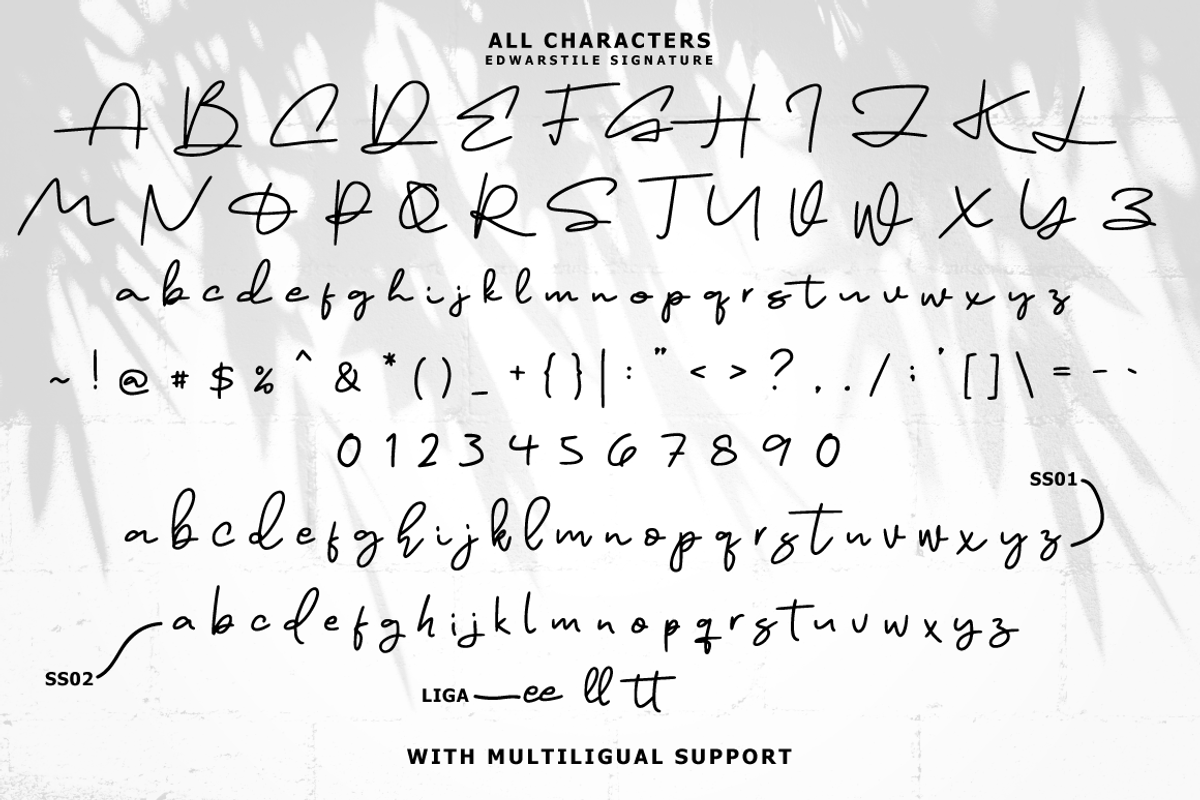 ALL CHARACTERS
EDWARSTILE SIGNATURE
A B C D E F G H I J K L
M N O P Q R S T U V W X Y Z
a b c d e f g h i j k l m n o p q r s t u v w x y z
~ ! @ # $ % ^ & * ( ) _ + { } | : " < > ? , . / ; ' [ ] \ = - `
0 1 2 3 4 5 6 7 8 9 0
SS01
a b c d e f g h i j k l m n o p q r s t u v w x y z
a b c d e f g h i j k l m n o p q r s t u v w x y z
SS02
LIGA ee ll tt
WITH MULTILIGUAL SUPPORT